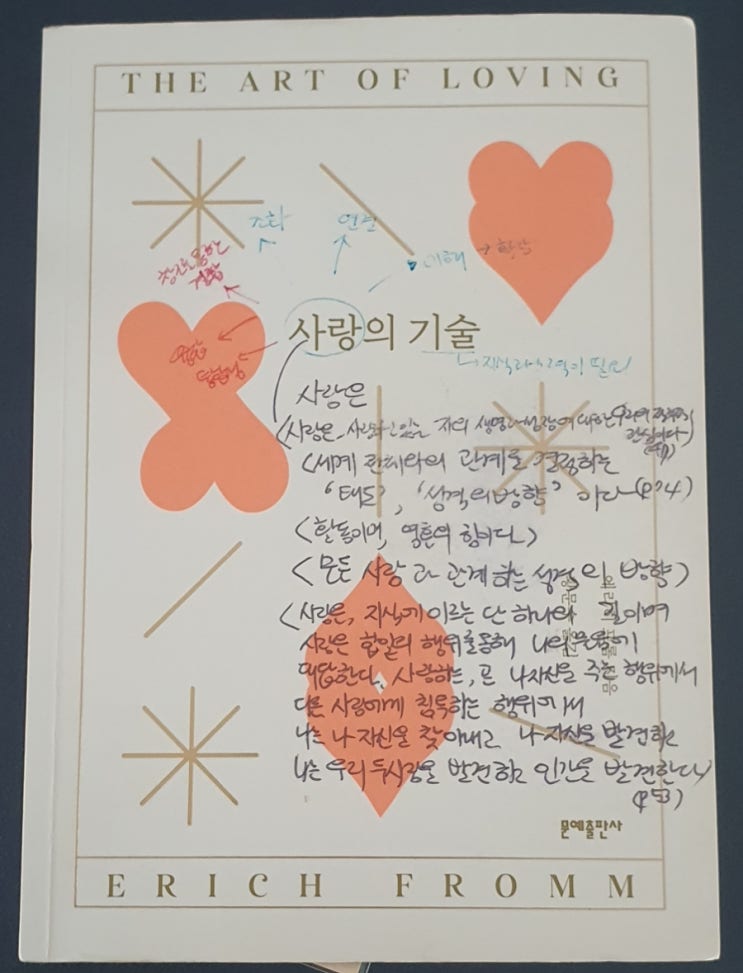 THE ART OF LOVING
조화
연결
이해
→
결합
사랑의 기술
지식과 노력이 필요
사랑은
<사랑은 사랑하고 있는 자의 생명과 성장에 대한 우리의 적극적
관심이다>
<세계 전체와의 관계를 결정하는
'태도', '성격의 방향' 이다 (p74)
<활동이며, 영혼의 힘이다.>
<모든 사랑과 관계하는 성격의 방향>
<사랑은, 지식에 이르는 단 하나의 길이며
사랑은 합일의 행위를 통해 나의 물음에
대답한다. 사랑하는, 곧 나 자신을 주는 행위에서
다른 사람에게 침투하는 행위에서
나는 나 자신을 찾아내고 나 자신을 발견하고
나는 우리 두 사람을 발견하고 인간을 발견한다>
(p53)
문예출판사
ERICH FROMM